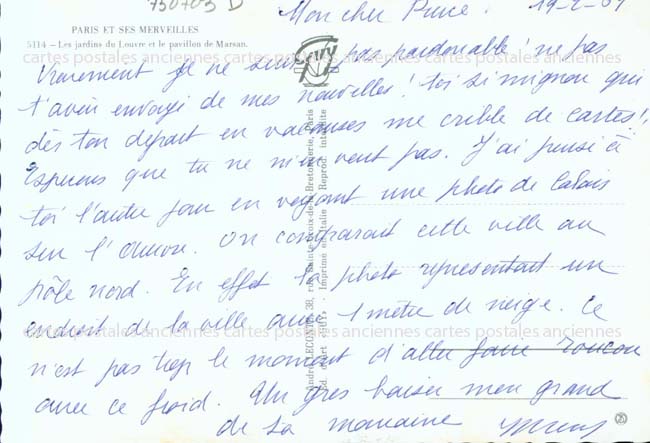 750703 D
Mon cher Puce. 19-2-87
PARIS ET SES MERVEILLES
5114 – Les jardins du Louvre et le pavillon de Marsan.
cartes postales anciennes cartes postales anciennes cartes postales anciennes
Vraiment je ne suis pas pardonable! ne pas
t'avoir envoyé de mes nouvelles! toi si mignon qui
dès ton départ en vacances me crible de cartes!
Espérons que tu ne m'en veut pas. J'ai pensé à
toi l'autre jour en voyant une photo de Calais
sur l'Aurore. On comparait cette ville au
pôle nord. En effet la photo représentait un
endroit de la ville avec 1 mètre de neige. Ce
cartes postales anciennes cartes postales anciennes cartes postales anciennes
n'est pas trop le moment d'aller faire
avec ce froid. Un gros baiser mon grand
de ta marraine
André LECONTE, 38, rue Sainte-Croix-de-la-Bretonnerie, Paris
Imprimé en Italie - Reprod. interdite